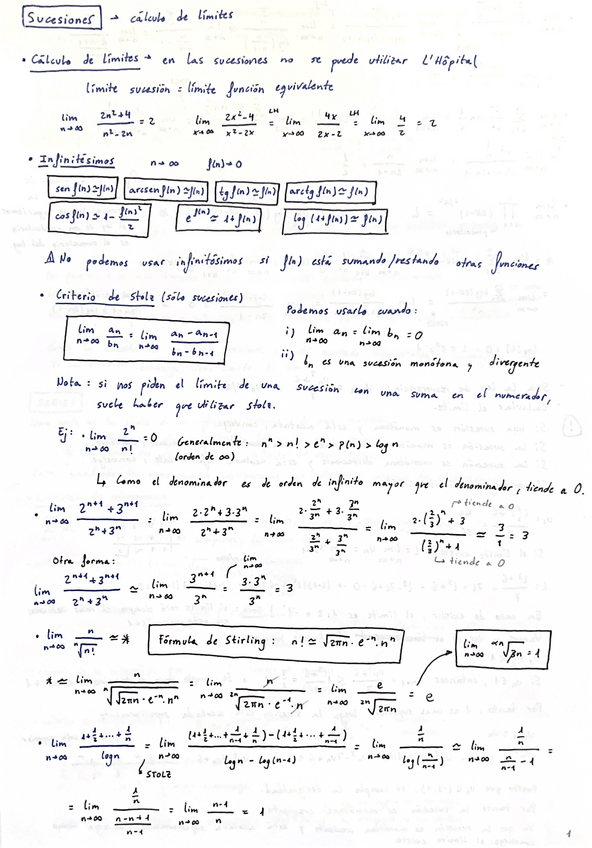 Sucesiones → cálculo de límites
• Cálculo de límites → en las sucesiones no se puede utilizar L'Hôpital
límite sucesión = límite función equivalente
lim n→∞ (2n²+4)/(n²-2n) = 2   lim x→∞ (2x²-4)/(x²-2x) =^LH lim x→∞ 4x/(2x-2) =^LH lim x→∞ 4/2 = 2
• Infinitésimos   n→∞   f(n)→0
sen f(n) ≃ f(n)   arcsen f(n) ≃ f(n)   tg f(n) ≃ f(n)   arctg f(n) ≃ f(n)
cos f(n) ≃ 1 - f(n)²/2   e^f(n) ≃ 1+f(n)   log (1+f(n)) ≃ f(n)
⚠ No podemos usar infinitésimos si f(n) está sumando/restando otras funciones
• Criterio de Stolz (sólo sucesiones)
Podemos usarlo cuando:
lim n→∞ aₙ/bₙ = lim n→∞ (aₙ - aₙ₋₁)/(bₙ - bₙ₋₁)
i) lim n→∞ aₙ = lim n→∞ bₙ = 0
ii) bₙ es una sucesión monótona y divergente
Nota: si nos piden el límite de una sucesión con una suma en el numerador,
suele haber que utilizar Stolz.
Ej: • lim n→∞ 2ⁿ/n! = 0   Generalmente: nⁿ > n! > eⁿ > P(n) > log n
(orden de ∞)
↳ Como el denominador es de orden de infinito mayor que el denominador, tiende a 0.
• lim n→∞ (2ⁿ⁺¹+3ⁿ⁺¹)/(2ⁿ+3ⁿ) = lim n→∞ (2·2ⁿ+3·3ⁿ)/(2ⁿ+3ⁿ) = lim n→∞ (2·2ⁿ/3ⁿ + 3·3ⁿ/3ⁿ)/(2ⁿ/3ⁿ + 3ⁿ/3ⁿ) = lim n→∞ (2·(2/3)ⁿ + 3)/((2/3)ⁿ + 1) ≃ 3/1 = 3
tiende a 0
↳ tiende a 0
Otra forma:
lim n→∞ (2ⁿ⁺¹+3ⁿ⁺¹)/(2ⁿ+3ⁿ) ≃ lim n→∞ 3ⁿ⁺¹/3ⁿ = lim n→∞ 3·3ⁿ/3ⁿ = 3
• lim n→∞ n/ⁿ√n! ≃ *   Fórmula de Stirling: n! ≃ √2πn · e⁻ⁿ · nⁿ   lim n→∞ ᵅⁿ√βn = 1
* ≃ lim n→∞ n/ⁿ√(√2πn · e⁻ⁿ · nⁿ) = lim n→∞ n/(²ⁿ√2πn · e⁻¹ · n) = lim n→∞ e/²ⁿ√2πn = e
• lim n→∞ (1+1/2+...+1/n)/log n = lim n→∞ ((1+1/2+...+1/(n-1)+1/n)-(1+1/2+...+1/(n-1)))/(log n - log(n-1)) = lim n→∞ (1/n)/log(n/(n-1)) ≃ lim n→∞ (1/n)/(n/(n-1) - 1) =
↳ STOLZ
= lim n→∞ (1/n)/((n-n+1)/(n-1)) = lim n→∞ (n-1)/n = 1
1